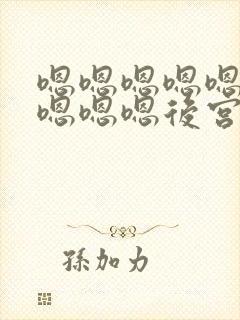 嗯嗯嗯嗯嗯
嗯嗯嗯後宮
孫加力